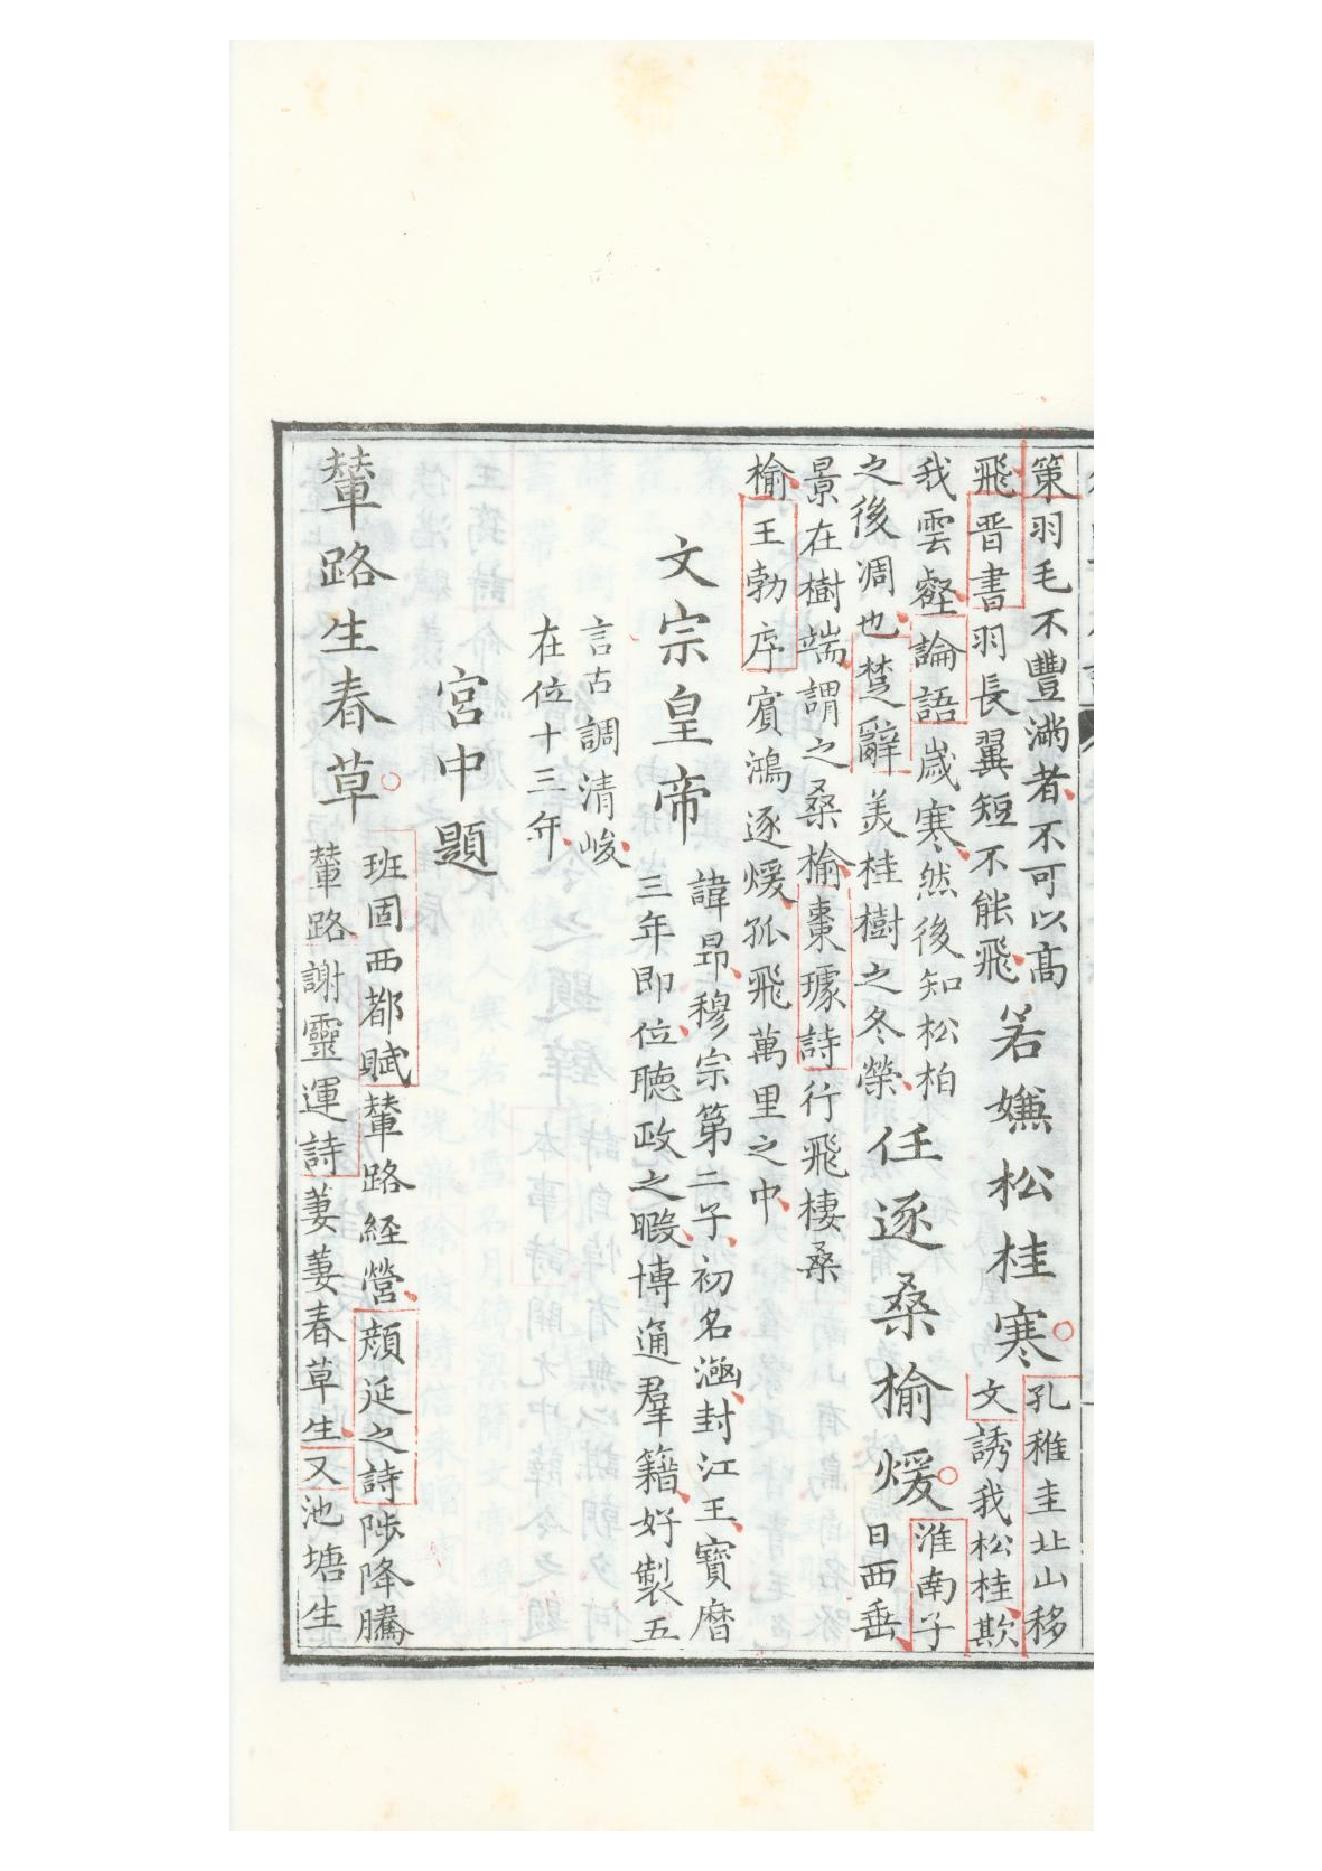 策羽毛不豐滿者不可以高
飛晋書羽長翼短不能飛
若嫌松桂寒
孔稚圭北山移
文誘我松桂欺
我雲壑論語歲寒然後知松柏
之後凋也楚辭美桂樹之冬榮
任逐桑榆煖
淮南子
日西垂
景在樹端謂之桑榆棗璩詩行飛棲桑
榆王勃序賓鴻逐煖孤飛萬里之中
文宗皇帝
諱昂穆宗第二子初名涵封江王寶曆
三年即位聽政之暇博通羣籍好製五
言古調清峻
在位十三年
宮中題
輦路生春草
班固西都賦輦路經營顏延之詩陟降騰
輦路謝靈運詩萋萋春草生又池塘生